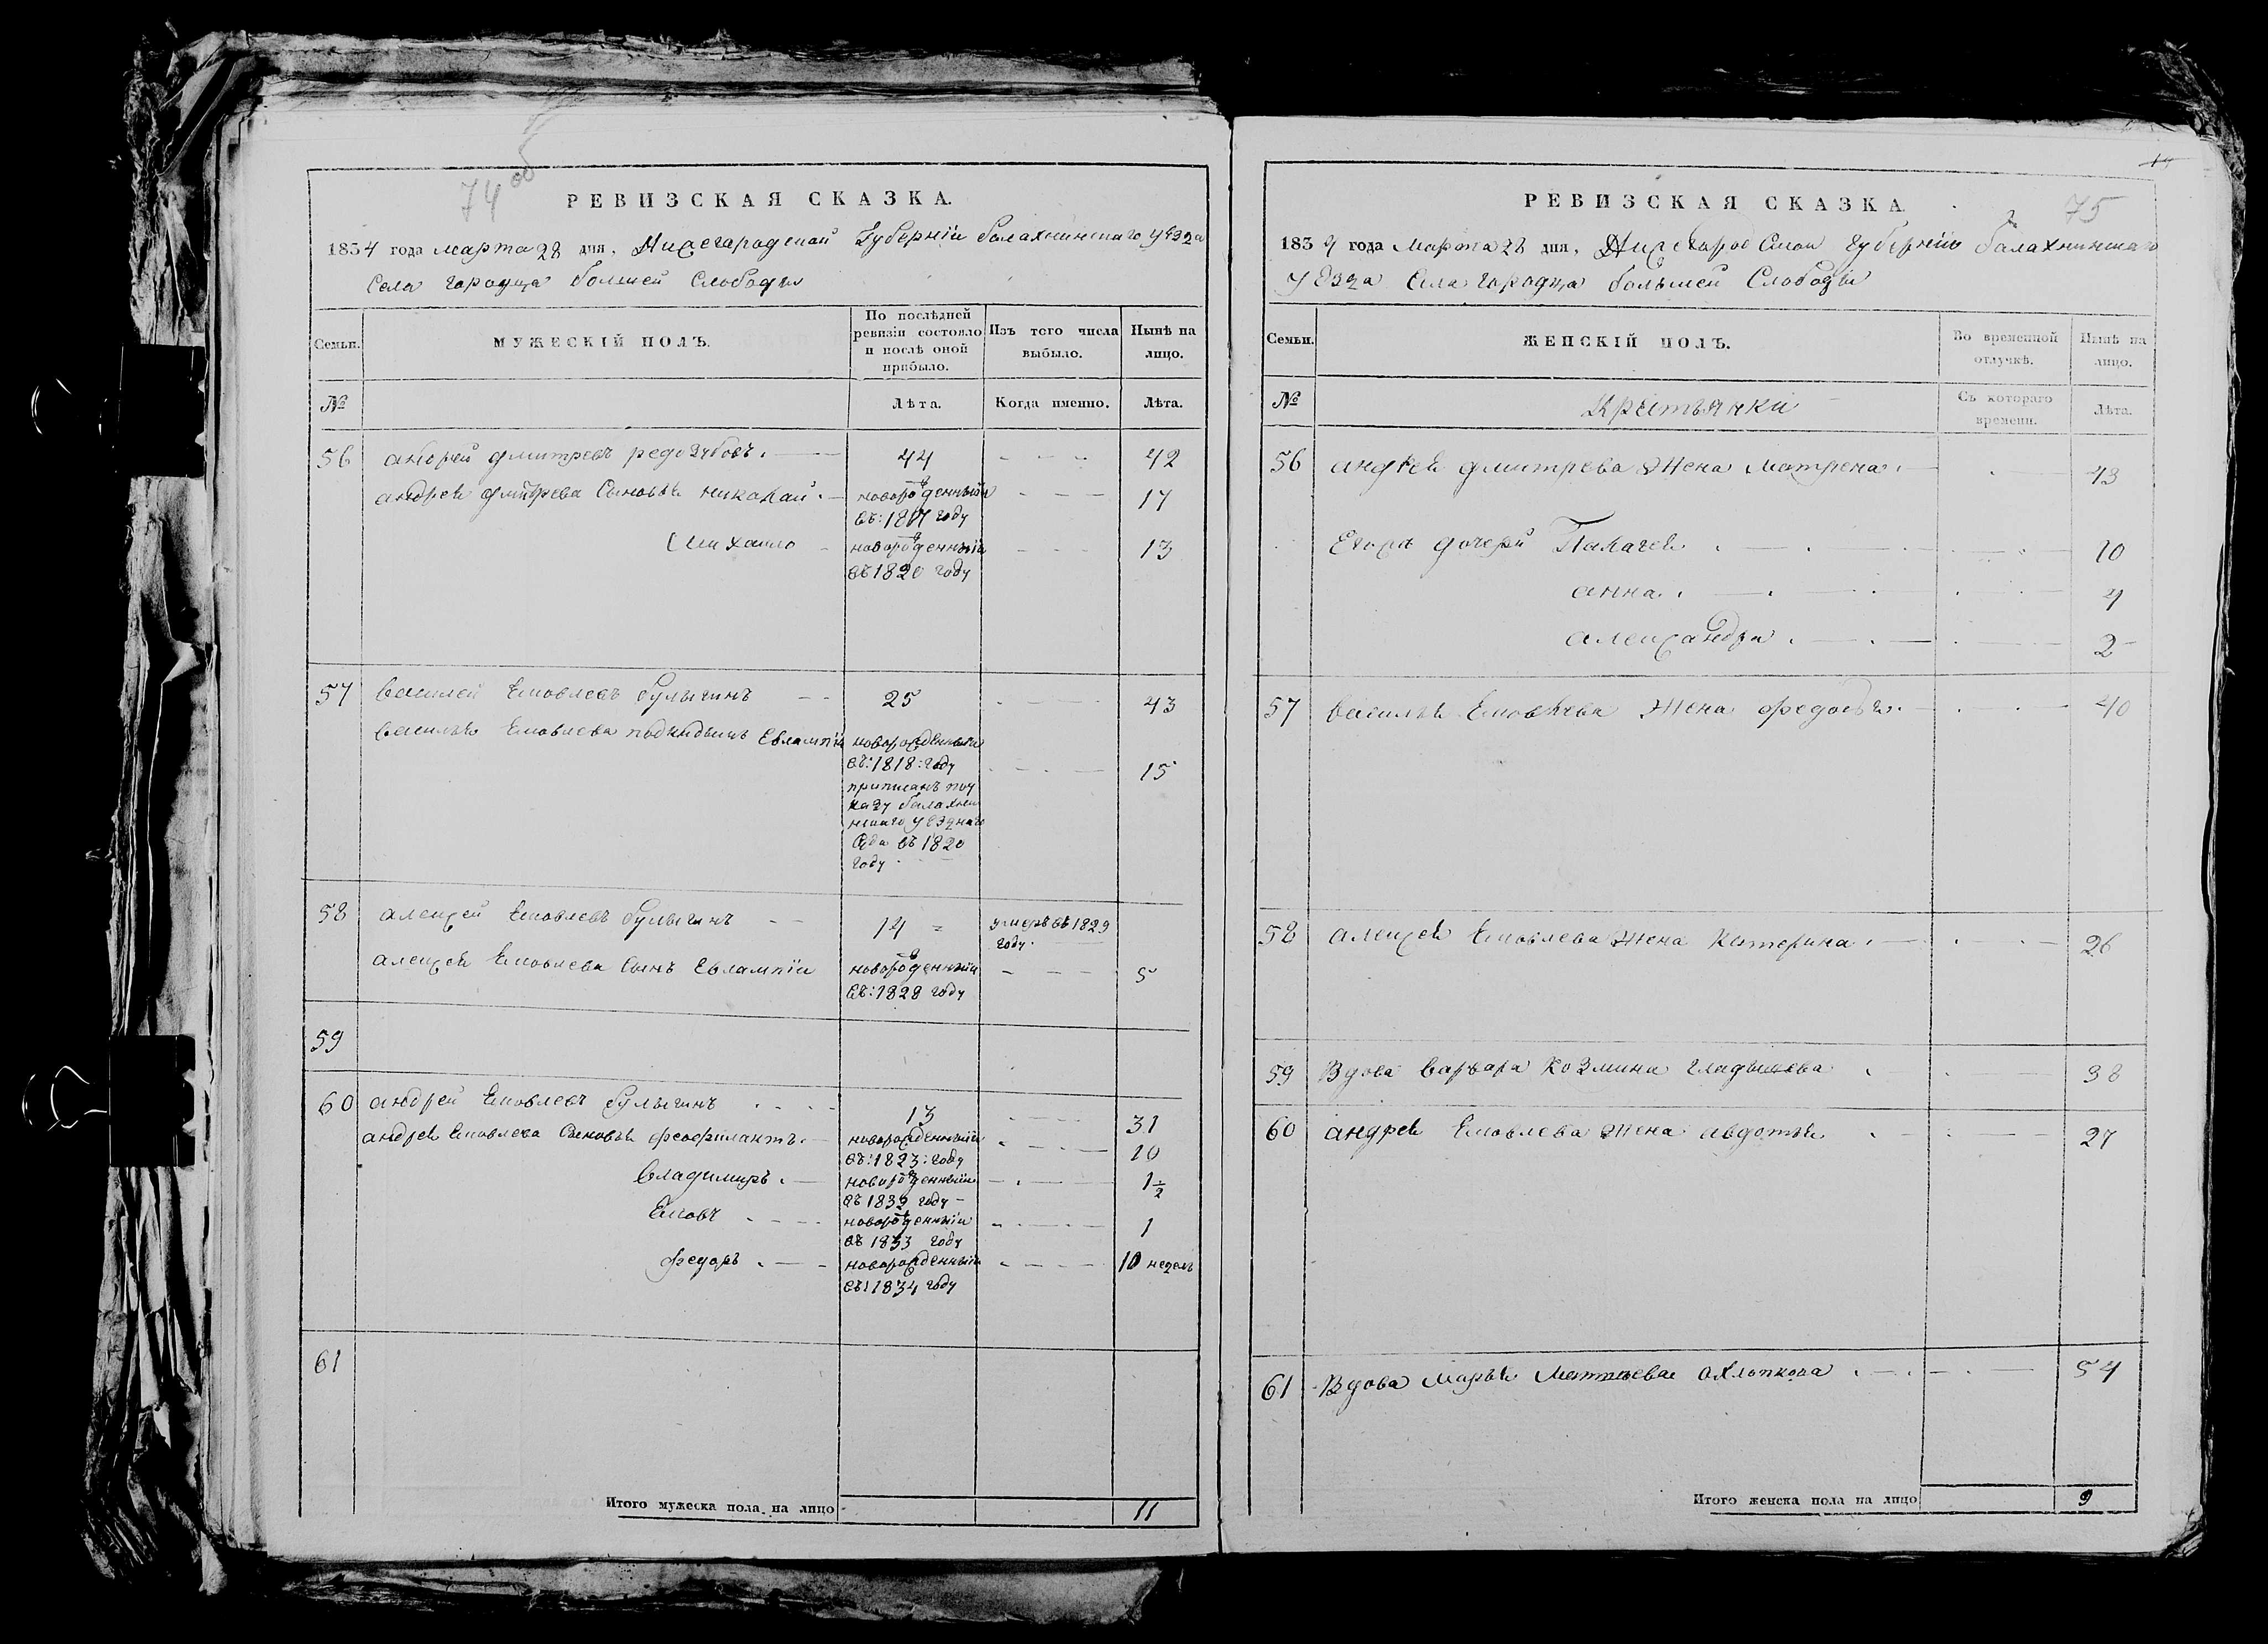 74 об
РЕВИЗСКАЯ СКАЗКА.
1834 года марта 28 дня, Нижегородской Губерніи балахнинскаго уѣзда
Села городца большей Слободы
Семьи.
МУЖЕСКІЙ ПОЛЪ.
По послѣдней ревизіи состояло и послѣ оной прибыло.
Изъ того числа выбыло.
Нынѣ на лицо.
№
Лѣта.
Когда именно.
Лѣта.
56 андрей дмитревъ редозубовъ. 44 42
андрея дмитрева Сыновья николай новорожденный 17
въ: 1817 году
михаило новорожденный 13
въ 1820 году
57 василей Яковлевъ булыгинъ 25 43
василья Яковлева подкидышъ Евлампій новорожденный
въ: 1818: году 15
приписанъ поу
казу балахни
нскаго уѣзднаго
Суда въ 1820
году
58 алексей Яковлевъ булыгинъ 14 умеръ въ 1829
году.
алексея Яковлева Сынъ Евлампій новорожденный 5
въ: 1828 году
59
60 андрей Яковлевъ булыгинъ 13 31
андрея Яковлева Сыновья феофилактъ новорожденный 10
въ: 1823: году
владимиръ. новорожденный 1½
въ 1832 году
Яковъ новорожденный 1
въ 1833 году
федоръ новорожденный 10 недель
въ 1834 году
61
Итого мужеска пола на лицо 11
75
РЕВИЗСКАЯ СКАЗКА
1834 года Марта 28 дня, Нижегородской губерніи балахнинскаго
уѣзда Села городца большей Слободы
Семьи.
ЖЕНСКІЙ ПОЛЪ.
Во временной отлучкѣ.
Нынѣ на лицо.
№
Крестьянки
Съ котораго времени.
Лѣта.
56 андрея дмитрева Жена Матрена. 43
Егора дочери Палагея 10
анна. 4
александра 2
57 василья Яковлева Жена федосья. 40
58 алексея Яковлева Жена Катерина. 26
59 Вдова варвара Козмина гладышева 38
60 андрея Яковлева Жена авдотья 27
61 Вдова Марья Матвѣева охлопкова 54
Итого женска пола на лицо 9